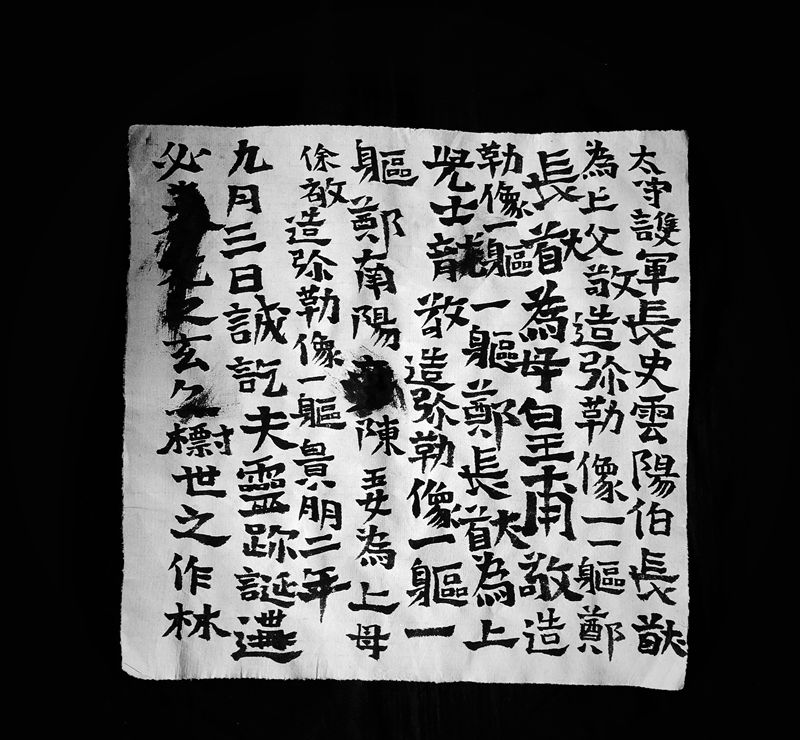 太守護軍長史雲陽伯長猷
為亡父敬造弥勒像一軀鄭
長猷為母皇甫敬造
勒像一軀一軀鄭長猷為亡
兒士龍敬造弥勒像一軀一
軀鄭南陽陳玉女為亡母
徐敬造弥勒像一軀景明二年
九月三日誠訖夫靈跡誕遘
必之玄世之作林